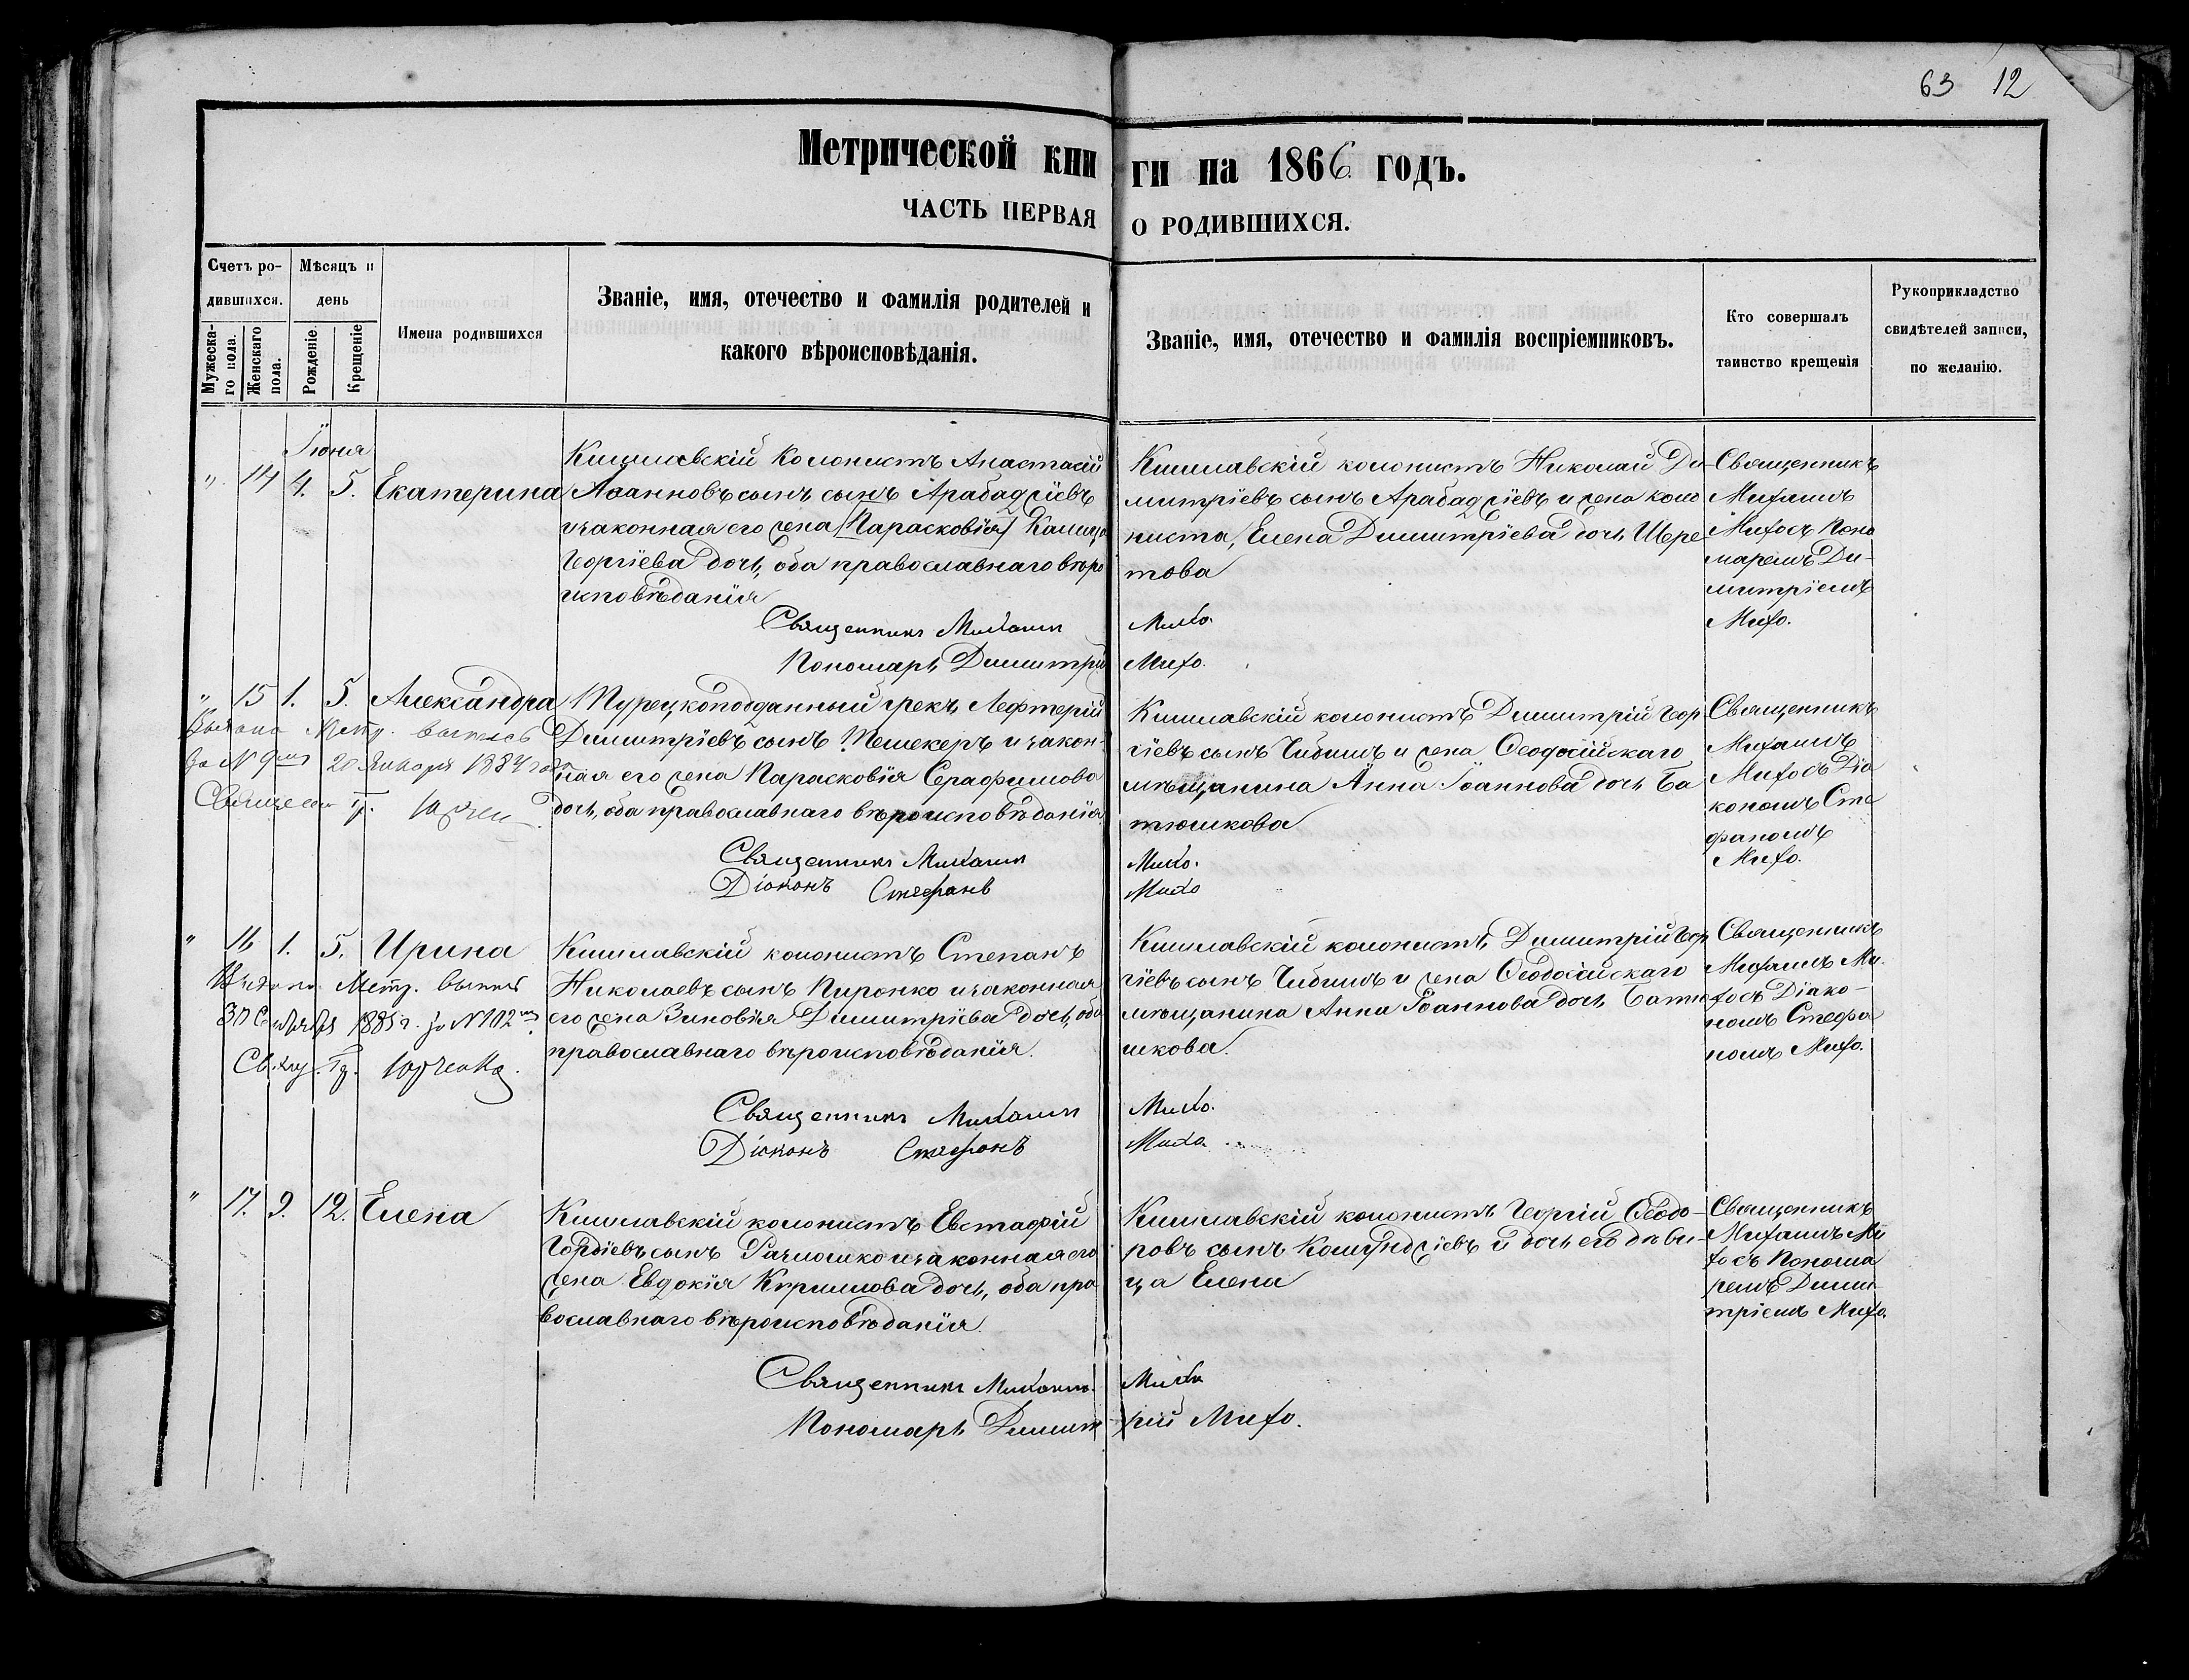 63 12
Метрической кни ги на 1866. годъ.
ЧАСТЬ ПЕРВАЯ О РОДИВШИХСЯ.
Счетъ ро-
дившихся.
Мужеска-
го пола.
Женскаго
пола.
Мѣсяцъ и
день
Рожденіе.
Крещеніе
Имена родившихся
Званіе, имя, отечество и фамилія родителей и
какого вѣроисповѣданія.
Званіе, имя, отечество и фамилія воспріемниковъ.
Кто совершалъ
таинство крещенія
Рукоприкладство
свидѣтелей записи,
по желанію.
Іюня
" 14 4. 5. Екатерина
Кишлавскій колонистъ Анастасій
Іоанновъ сынъ сынъ Арабаджіевъ
и законная его жена (Парасковія)
Георгіева дочь, оба православнаго вѣро
исповѣданія
Священникъ Михаилъ
Пономарь Димитрій
Кишлавскій колонистъ Николай Ди-
митріевъ сынъ Арабаджіевъ и жена коло
ниста, Елена Димитріева дочь Шере
това
Михо.
Михо.
Священникъ
Михаилъ
Михо съ Поно
маремъ Ди-
митріемъ
Михо.
" 15 1. 5. Александра
Выдана Метр. выпись
за № 9мъ 20 Января 1884 года
Турецкоподданный грекъ Лефтерій
Димитріевъ сынъ Пемекеръ и закон-
ная его жена Парасковія Серафимова
дочь, оба православнаго вѣроисповѣданія.
Священникъ Михаилъ
Діаконъ Стефанъ
Кишлавскій колонистъ Димитрій Геор
гіевъ сынъ Чибишъ и жена Ѳеодосійскаго
мѣщанина Анна Іоаннова дочь Ба
тюшкова
Михо.
Михо
Священникъ
Михаилъ
Михо съ Діа
кономъ Сте
фаномъ
Михо.
" 16 1. 5. Ирина
Выдана Метр. выпись
1885 г. за № 102мъ
Юрченко.
Кишлавскій колонистъ Степанъ
Николаевъ сынъ Пиронко и законная
его жена Зиновія Димитріева дочь, оба
православнаго вѣроисповѣданія.
Священникъ Михаилъ
Діаконъ Стефанъ
Кишлавскій колонистъ, Димитрій Геор
гіевъ сынъ Чибишъ и жена Ѳеодосійскаго
мѣщанина Анна Іоаннова дочь Батю
шкова.
Михо.
Михо
Священникъ
Михаилъ Ми
хо съ Діако-
номъ Стефа
номъ Михо.
" 17. 9. 12. Елена
Кишлавскій колонистъ Евстафій
Гордіевъ сынъ и законная его
жена Евдокія Кириллова дочь, оба пра
вославнаго вѣроисповѣданія.
Священникъ Михаилъ
Пономарь Димит
Кишлавскій колонистъ Георгій Ѳеодо-
ровъ сынъ и дочь его дѣви-
ца Елена
Михо
рій Михо.
Священникъ
Михаилъ Ми
хо съ Понома
ремъ Дими
тріемъ Михо.